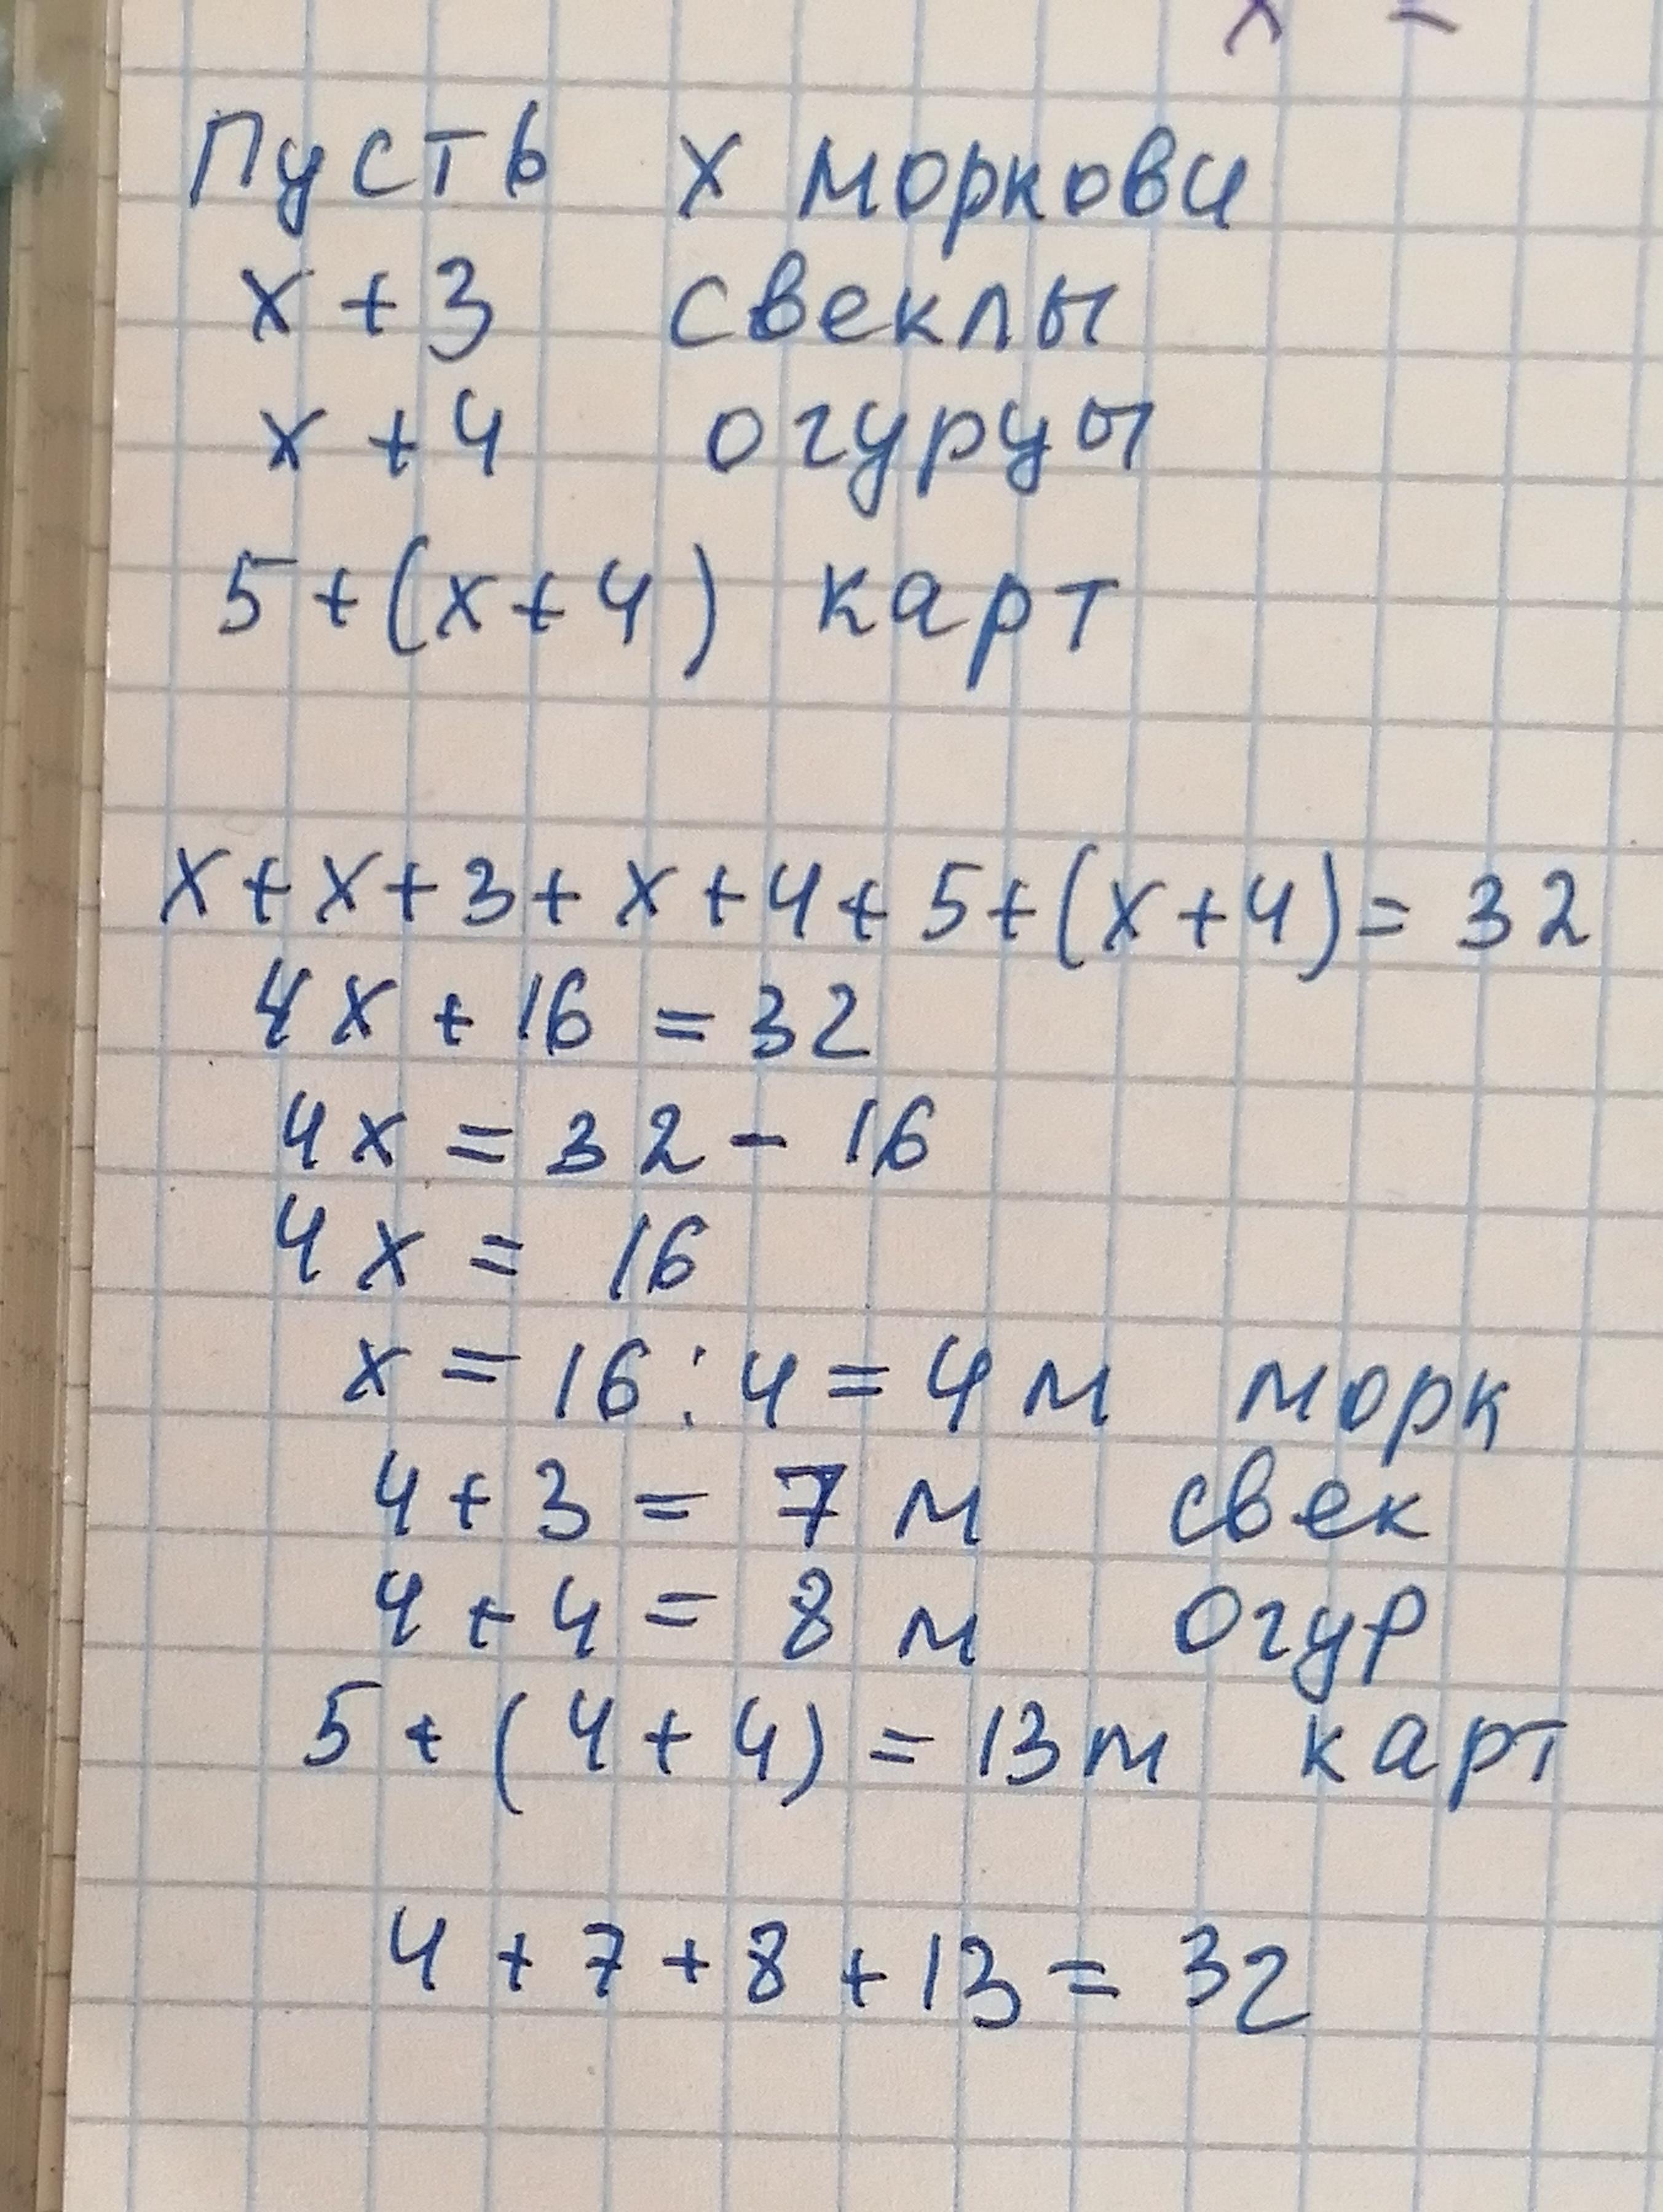 x =
Пусть x моркови
x + 3 свеклы
x + 4 огурцы
5 + (x + 4) карт
x + x + 3 + x + 4 + 5 + (x + 4) = 32
4x + 16 = 32
4x = 32 - 16
4x = 16
x = 16 : 4 = 4 м морк
4 + 3 = 7 м свек
4 + 4 = 8 м огур
5 + (4 + 4) = 13 м карт
4 + 7 + 8 + 13 = 32